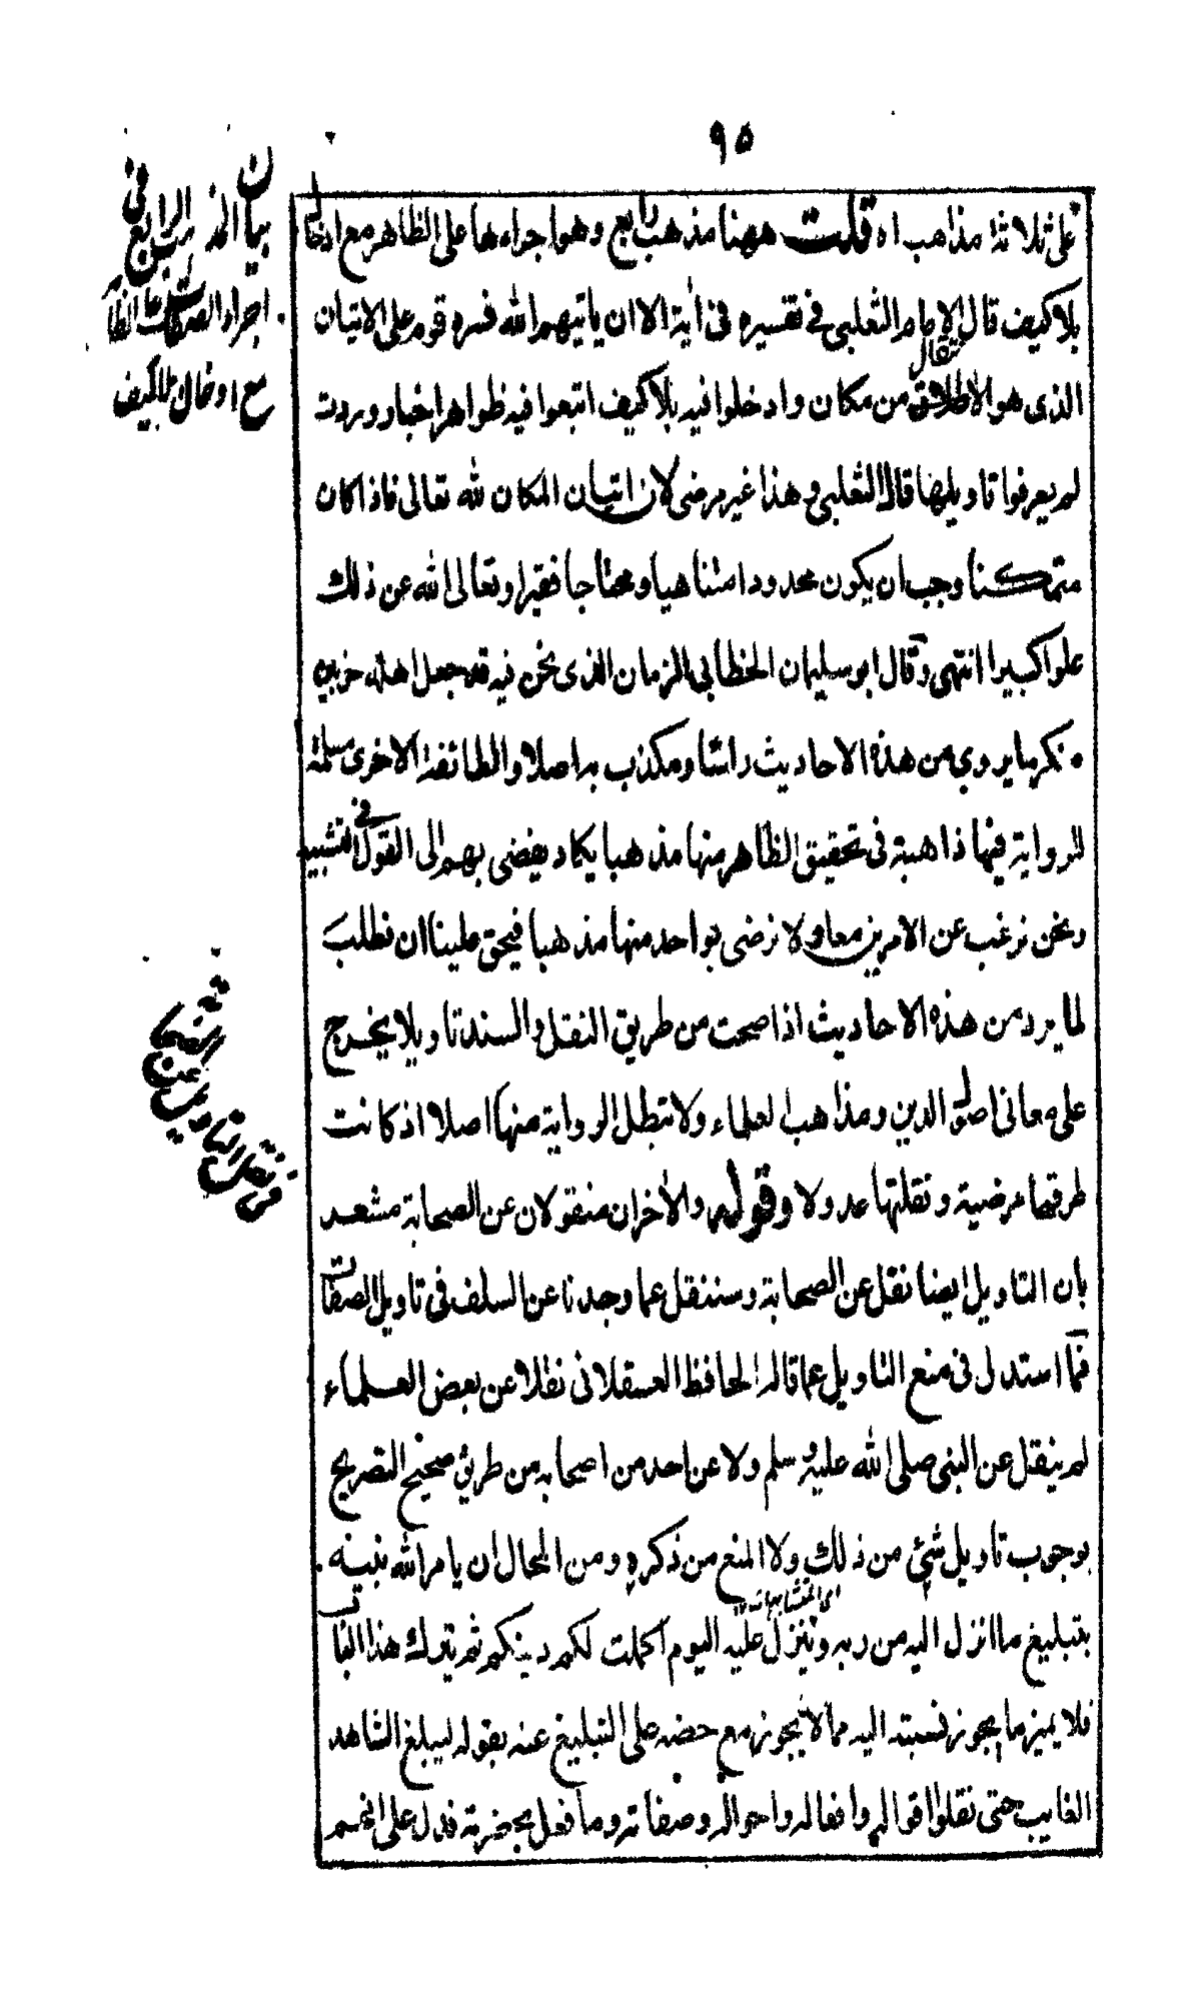 ٩٥
على ثلاثة مذاهب اه قلت ههنا مذهب رابع وهو اجراءها على الظاهر مع ادخال
بلا كيف قال الامام الثعلبي في تفسيره في اية الا ان ياتيهم الله فسره قوم على الاتيان
الذى هو الانتقال من مكان وادخلوا فيه بلا كيف اتبعوا فيه ظواهر اخبار وردت
لم يعرفوا تاويلها قال الثعلبي وهذا غير مرضى لان اتيان المكان لله تعالى فاذا كان
متمكنا وجب ان يكون محدودا متناهيا ومحتاجا فقيرا وتعالى الله عن ذلك
علوا كبيرا انتهى وقال ابو سليمان الخطابي الزمان الذى نحن فيه قد جعل اهله حزبين
منكر ما يروي من هذه الاحاديث راسا ومكذب به اصلا والطائفة الاخرى مسلمة
للرواية فيها ذاهبة في تحقيق الظاهر منها مذهبا يكاد يفضى بهم الى القول في التشبيه
ونحن نرغب عن الامرين معا ولا نرضى بواحد منهما مذهبا فيحق علينا ان نطلب
لما يرد من هذه الاحاديث اذا صحت من طريق النقل والسند تاويلا يخرج
على معانى اصول الدين ومذاهب العلماء ولا تبطل الرواية منها اصلا اذ كانت
طرقها مرضية ونقلتها عدولا وقوله والأخران منقولان عن الصحابة مشعر
بان التاويل ايضا نقل عن الصحابة وسننقل عما وجدنا عن السلف في تاويل الصفات
فما استدل في منع التاويل عما قاله الحافظ العسقلانى نقلا عن بعض العلماء
لم ينقل عن النبى صلى الله عليه وسلم ولا عن احد من اصحابه من طريق صحيح التصريح
بوجوب تاويل شئ من ذلك ولا المنع من ذكره ومن المحال ان يامر الله نبيه
اى المتشابهات
بتبليغ ما انزل اليه من ربه وتنزل عليه اليوم اكملت لكم دينكم ثم يترك هذا الباب
فلا يميز ما يجوز نسبته اليه مما لا يجوز مع حضه على التبليغ عنه بقوله ليبلغ الشاهد
الغايب حتى نقلوا اقواله وافعاله واحواله وصفاته وما فعل بحضرته فدل على انهم
بيان المذهب الرابع في
اجراء الصفات على الظاهر
مع ادخال بلا كيف
في نقل التاويل عن الصحابة